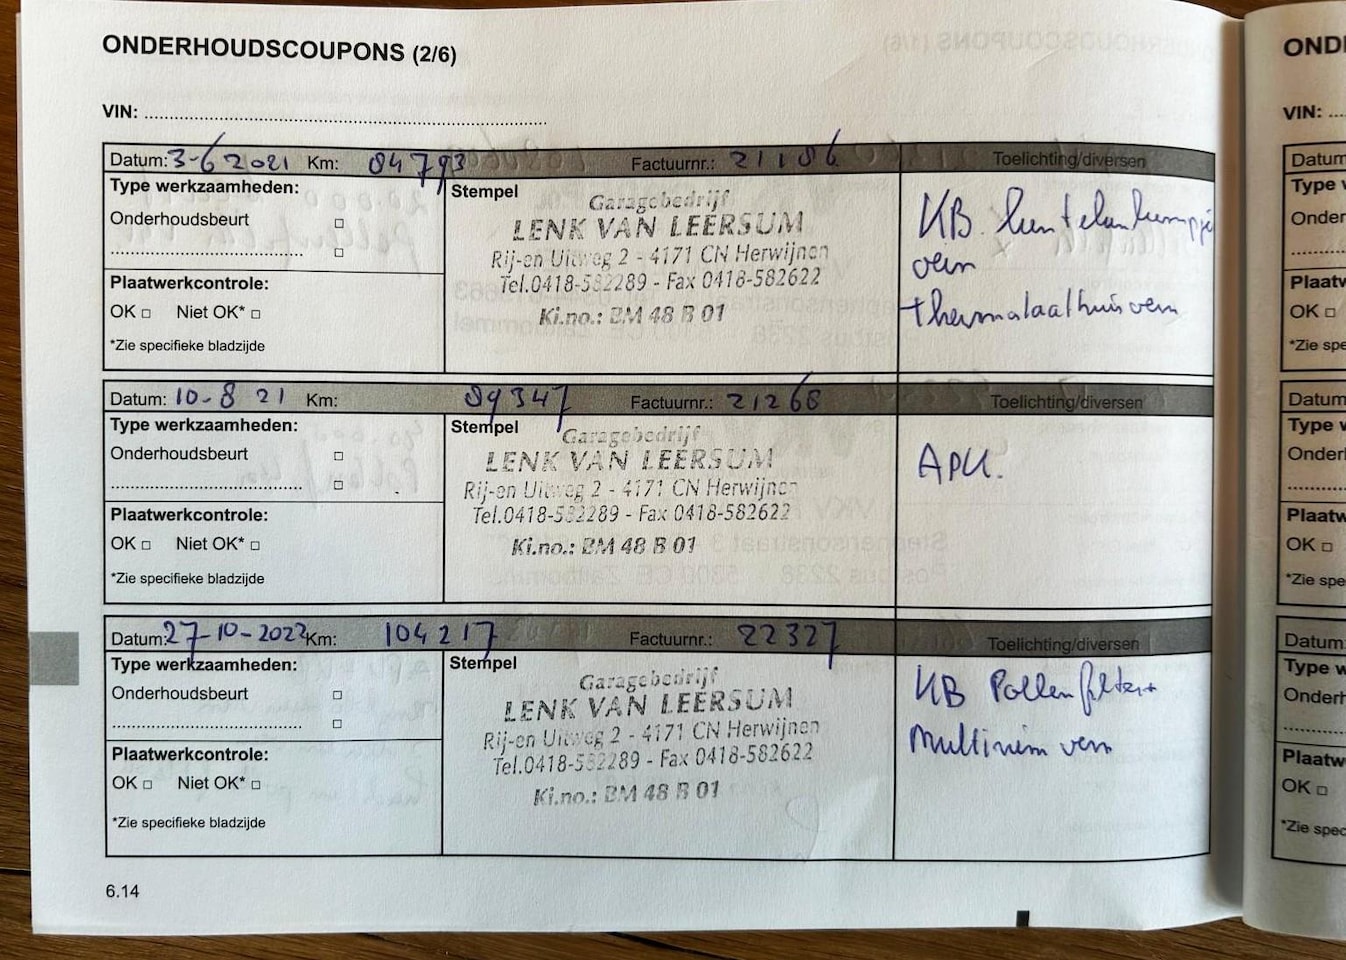 ONDERHOUDSCOUPONS (2/6)
VIN: ................................
Datum: 3-6 2021 Km: 84793 Factuurnr.: 21186 Toelichting/diversen
Type werkzaamheden:
Onderhoudsbeurt □
................................ □
Plaatwerkcontrole:
OK □ Niet OK* □
*Zie specifieke bladzijde
Stempel
Garagebedrijf
LENK VAN LEERSUM
Rij-en Uitweg 2 - 4171 CN Herwijnen
Tel.0418-582289 - Fax 0418-582622
Ki.no.: BM 48 B 01
KB
vern
thermostaathuis vern
Datum: 10-8 21 Km: 89347 Factuurnr.: 21268 Toelichting/diversen
Type werkzaamheden:
Onderhoudsbeurt □
................................ □
Plaatwerkcontrole:
OK □ Niet OK* □
*Zie specifieke bladzijde
Stempel
Garagebedrijf
LENK VAN LEERSUM
Rij-en Uitweg 2 - 4171 CN Herwijnen
Tel.0418-582289 - Fax 0418-582622
Ki.no.: BM 48 B 01
APK.
Datum: 27-10-2022 Km: 104217 Factuurnr.: 22327 Toelichting/diversen
Type werkzaamheden:
Onderhoudsbeurt □
................................ □
Plaatwerkcontrole:
OK □ Niet OK* □
*Zie specifieke bladzijde
Stempel
Garagebedrijf
LENK VAN LEERSUM
Rij-en Uitweg 2 - 4171 CN Herwijnen
Tel.0418-582289 - Fax 0418-582622
Ki.no.: BM 48 B 01
KB Pollenfilter+
Multiriem vern
6.14
OND
VIN: ....
Datum
Type w
Onder
Plaatw
OK □
*Zie spe
Datum
Type w
Onderl
Plaatw
OK □
*Zie spe
Datum:
Type w
Onderh
Plaatw
OK □
*Zie spec